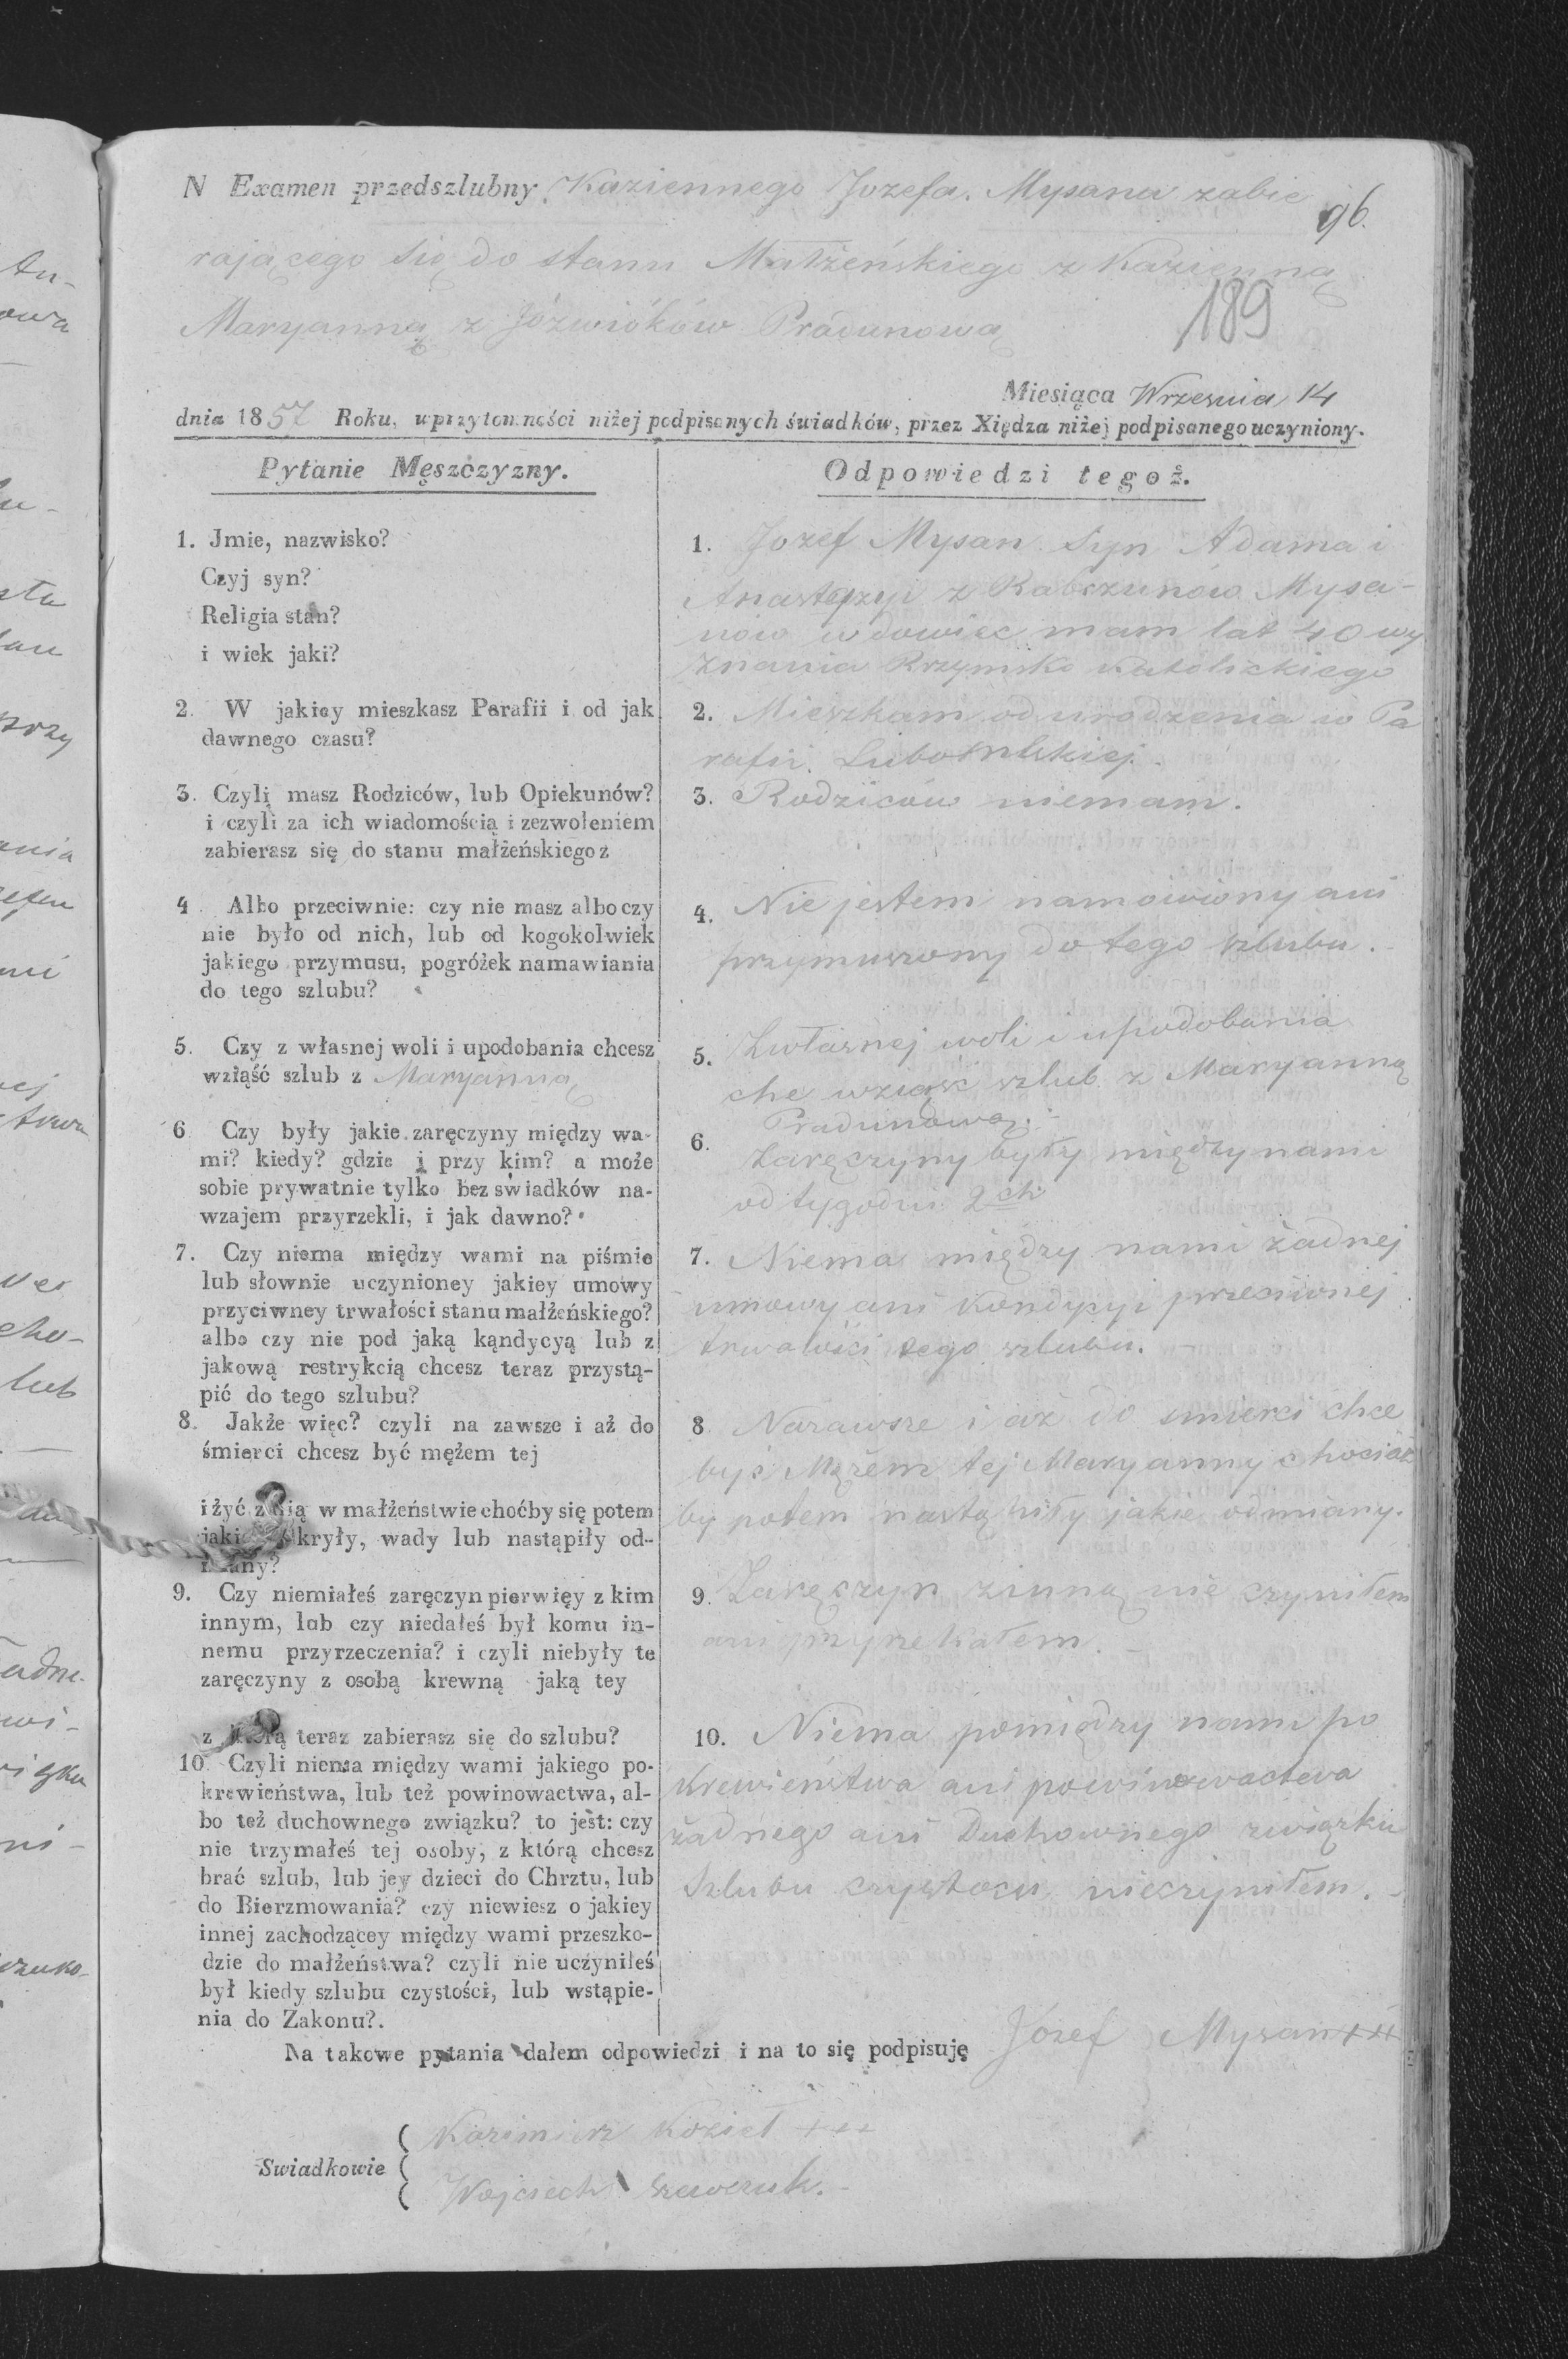 N Examen przedszlubny Kaziennego Jozefa Mysana zabie
96.
rającego się do stanu Małżeńskiego z Kazienną
Maryanną z Józwióków Pradunową
189
Miesiąca Września 14
dnia 1857 Roku, w przytomności niżej podpisanych świadków, przez Xiędza niżej podpisanego uczyniony.
Pytanie Męszczyzny.
1. Jmie, nazwisko?
Czyj syn?
Religia stan?
i wiek jaki?
2. W jakiey mieszkasz Parafii i od jak
dawnego czasu?
3. Czyli masz Rodziców, lub Opiekunów?
i czyli za ich wiadomością i zezwoleniem
zabierasz się do stanu małżeńskiego z
4. Albo przeciwnie: czy nie masz albo czy
nie było od nich, lub od kogokolwiek
jakiego przymusu, pogróżek namawiania
do tego szlubu?
5. Czy z własnej woli i upodobania chcesz
wziąść szlub z Maryanną
6. Czy były jakie zaręczyny między wa-
mi? kiedy? gdzie i przy kim? a może
sobie prywatnie tylko bez swiadków na-
wzajem przyrzekli, i jak dawno?
7. Czy niema między wami na piśmie
lub słownie uczynioney jakiey umowy
przyciwney trwałości stanu małżeńskiego?
albo czy nie pod jaką kąndycyą lub z
jakową restrykcią chcesz teraz przystą-
pić do tego szlubu?
8. Jakże więc? czyli na zawsze i aż do
śmierci chcesz być mężem tej
i żyć z nią w małżeństwie choćby się potem
jakie kryły, wady lub nastąpiły od-
miany?
9. Czy niemiałeś zaręczyn pierwięy z kim
innym, lub czy niedałeś był komu in-
nemu przyrzeczenia? i czyli niebyły te
zaręczyny z osobą krewną jaką tey
z którą teraz zabierasz się do szlubu?
10. Czyli niema między wami jakiego po-
krewieństwa, lub też powinowactwa, al-
bo też duchownego związku? to jest: czy
nie trzymałeś tej osoby, z którą chcesz
brać szlub, lub jey dzieci do Chrztu, lub
do Bierzmowania? czy niewiesz o jakiey
innej zachodzącey między wami przeszko-
dzie do małżeństwa? czyli nie uczyniłeś
był kiedy szlubu czystości, lub wstąpie-
nia do Zakonu?.
Odpowiedzi tegoż.
1. Jozef Mysan Syn Adama i
Anastazyi z Rabczunów Mysa-
nów wdowiec mam lat 40 wy
znania Rzymsko Katolickiego
2. Mieszkam od urodzenia w Pa
rafii
3. Rodziców niemam.
4. Nie jestem namowiony ani
przymuszony do tego szlubu.
5. Zwłasnej woli i upodobania
che wziąść szlub z Maryanną
Pradunową.
6. Zaręczyny były między nami
od tygodni 2ch
7. Niema między nami żadnej
umowy ani Kondycyi przeciwnej
trwałości tego szlubu.
8. Nazawsze i aż do smierci chce
być Mężem tej Maryanny chociaż
by potem nastąpiły jakie odmiany.
9. Zaręczyn zinną nie czyniłem
ani przyrzekałem.
10. Niema pomiędzy nami po
krewieństwa ani powinowactwa
żadnego ani Duchownego związku
Szlubu czystości nieczyniłem.
Na takowe pytania dałem odpowiedzi i na to się podpisuję Józef Mysan +++
Swiadkowie
Kazimierz Kozieł +++
Wojciech Szewczuk.